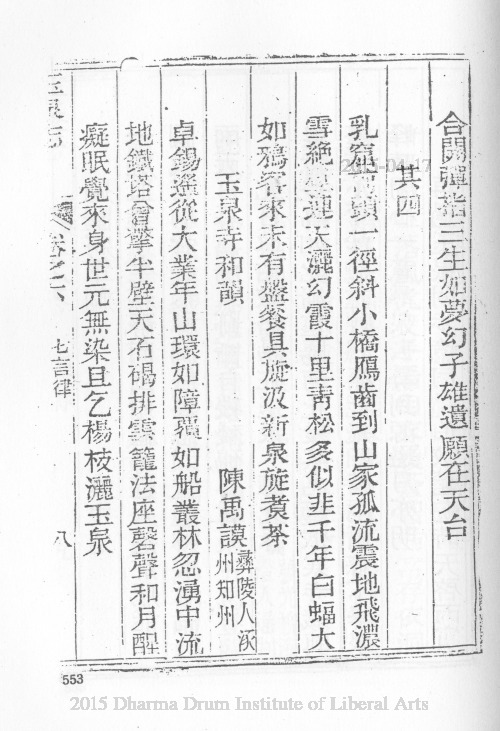 合開彈指三生如夢幻子雄遺願在天台
其四
乳窟 頭一徑斜小橋鴈齒到山家孤流震地飛濃
雪絶 連天灑幻霞十里青松多似韭千年白蝠大
如鴉客來未有盤餐具旋汲新泉旋煮茶
玉泉寺和韻 陳禹謨 彝陵人 州知州
卓錫遙從大業年山環如障覆如船叢林忽湧中流
地鐵塔曾擎半壁天石碣排雲籠法座磬聲和月醒
癡眠覺來身世元無染且乞楊枝灑玉泉
玉泉志 卷之六 七言律 八
553
2015 Dharma Drum Institute of Liberal Arts